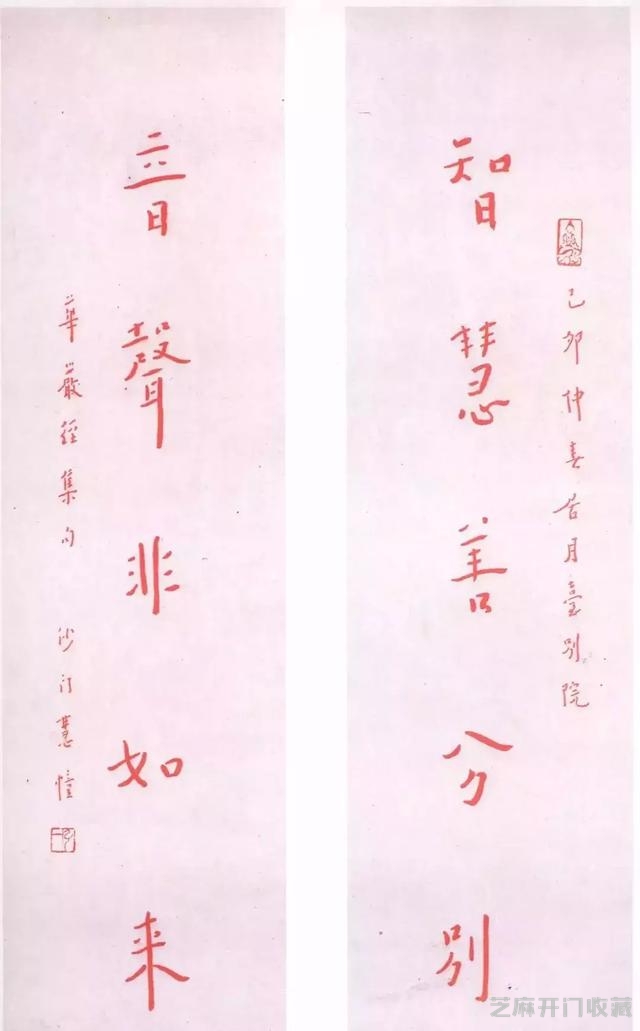 智慧善分別
己卯仲春居月臺別院
音聲非如来
華嚴經集句 沙門慧
芝麻开门收藏